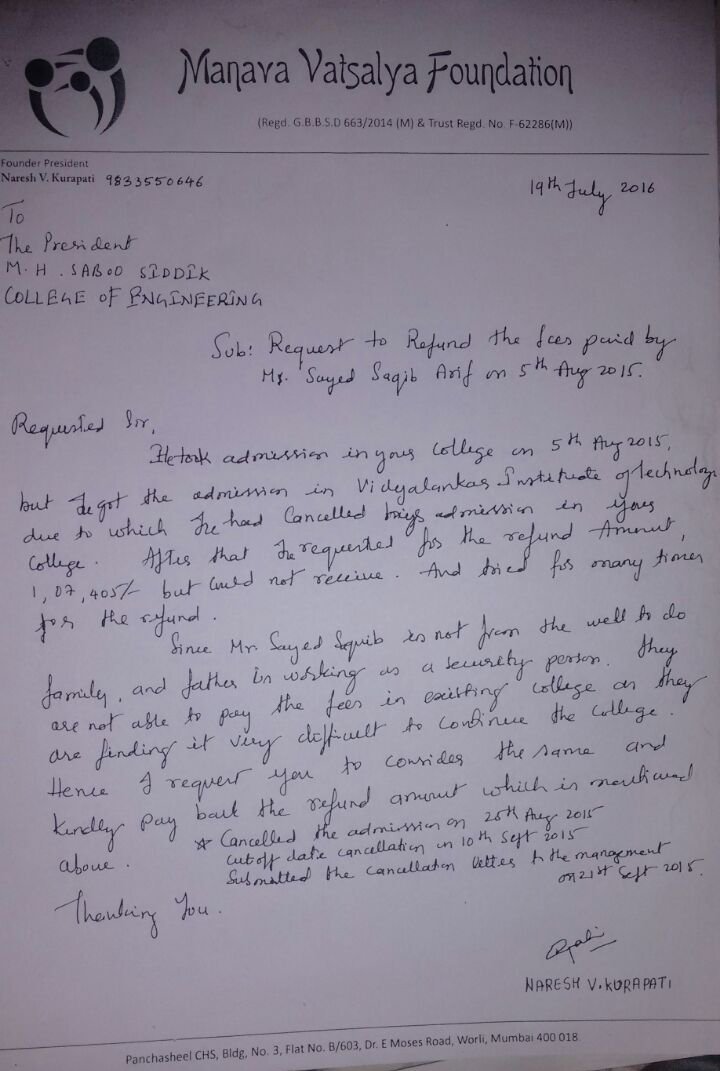 Manava Vatsalya Foundation
(Regd. G.B.B.S.D 663/2014 (M) & Trust Regd. No. F-62286(M))
Founder President
Naresh V. Kurapati 9833550646
19th July 2016
To
The President
M.H. SABOO SIDDIK
COLLEGE OF ENGINEERING
Sub: Request to Refund the fees paid by
Mr. Sayed Saqib Arif on 5th Aug 2015.
Requested Sir,
He took admission in your college on 5th Aug 2015,
but He got the admission in Vidyalankar Institute of Technology
due to which He had Cancelled admission in your
College. After that He requested for the refund Amount,
1,07,405/- but could not receive. And tried for many times
for the refund.
Since Mr. Sayed Squib is not from the well to do
family, and father is working as a security person. They
are not able to pay the fees in existing college as they
are finding it very difficult to continue the College.
Hence I request you to consider the same and
kindly pay back the refund amount which is mentioned
above.
* Cancelled the admission on 26th Aug 2015
cutoff date cancellation on 10th Sept 2015
Submitted the cancellation letter to the management
on 21st Sept 2015.
Thanking You.
NARESH V. KURAPATI
Panchasheel CHS, Bldg, No. 3, Flat No. B/603, Dr. E Moses Road, Worli, Mumbai 400 018.